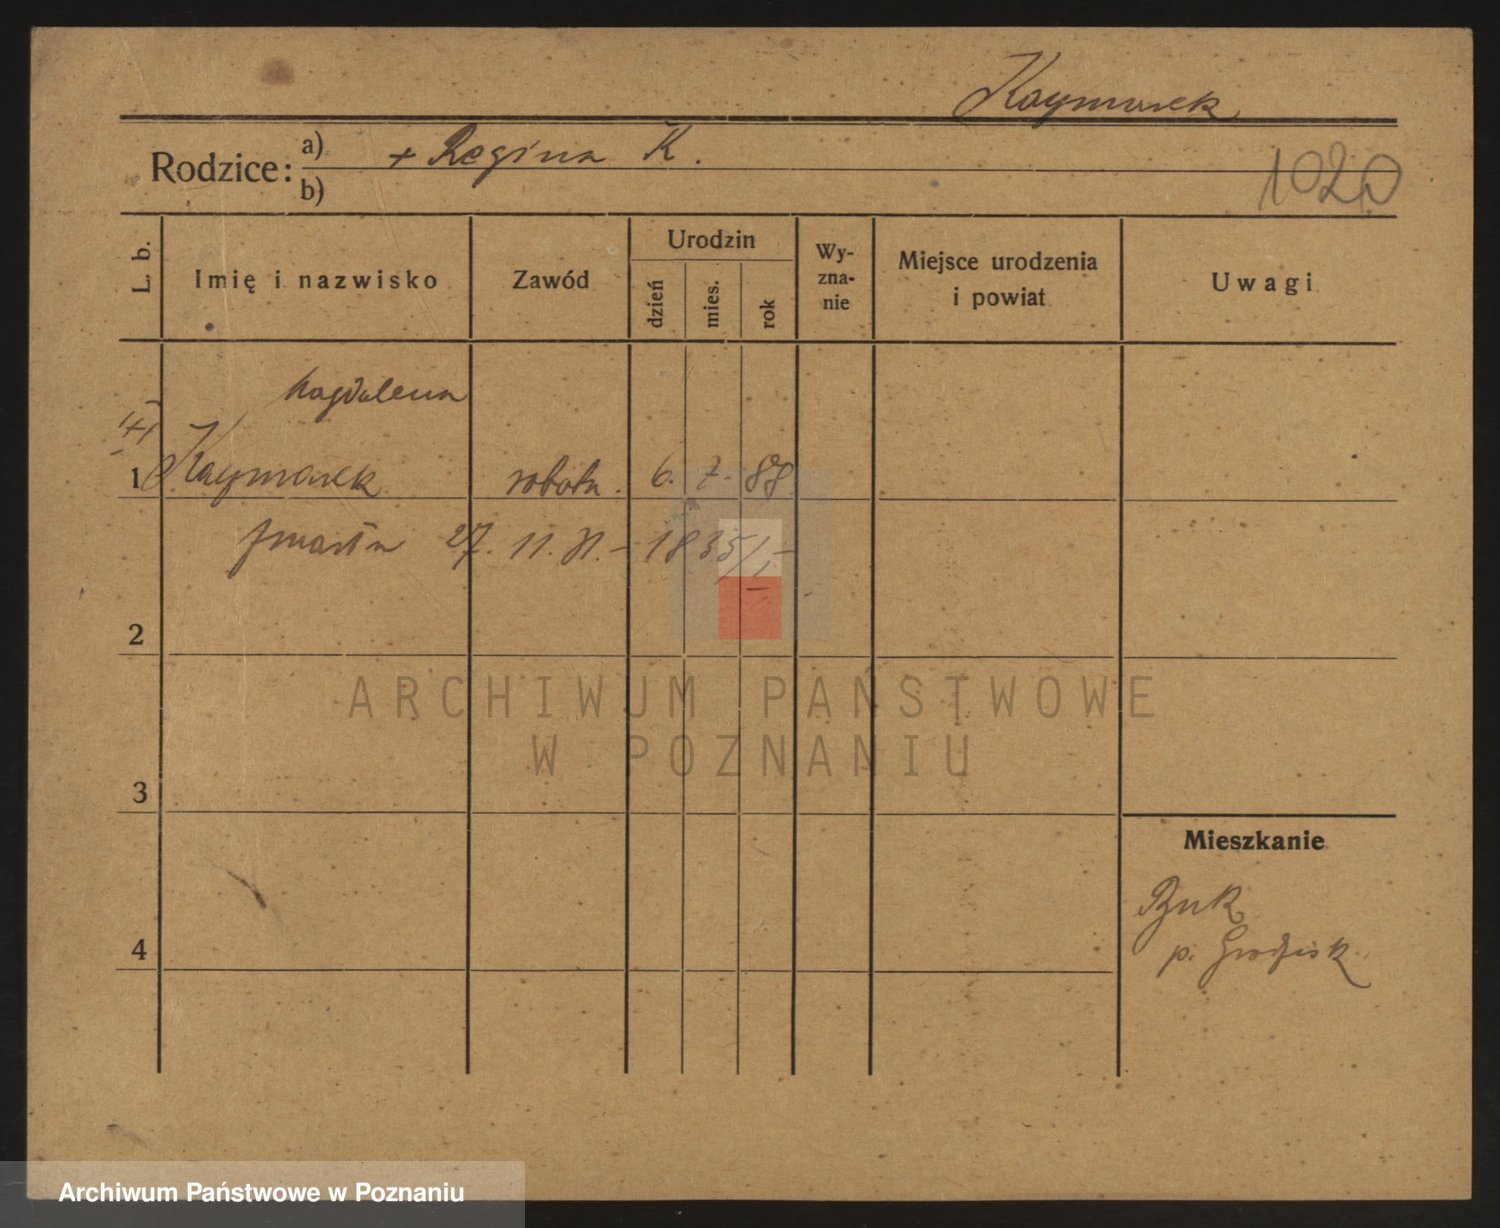 Kaymarek
Rodzice: a) + Regina K.
b)
1020
L. b.
Imię i nazwisko
Zawód
Urodzin
dzień
mies.
rok
Wy-
zna-
nie
Miejsce urodzenia
i powiat
Uwagi
Magdalena
1 Kaymarek robotn. 6. 7. 88
zmarła 27. 11. 31. – 1835/1,–
2
3
4
Mieszkanie
Buk
p. Grodzisk
ARCHIWUM PAŃSTWOWE
W POZNANIU
Archiwum Państwowe w Poznaniu